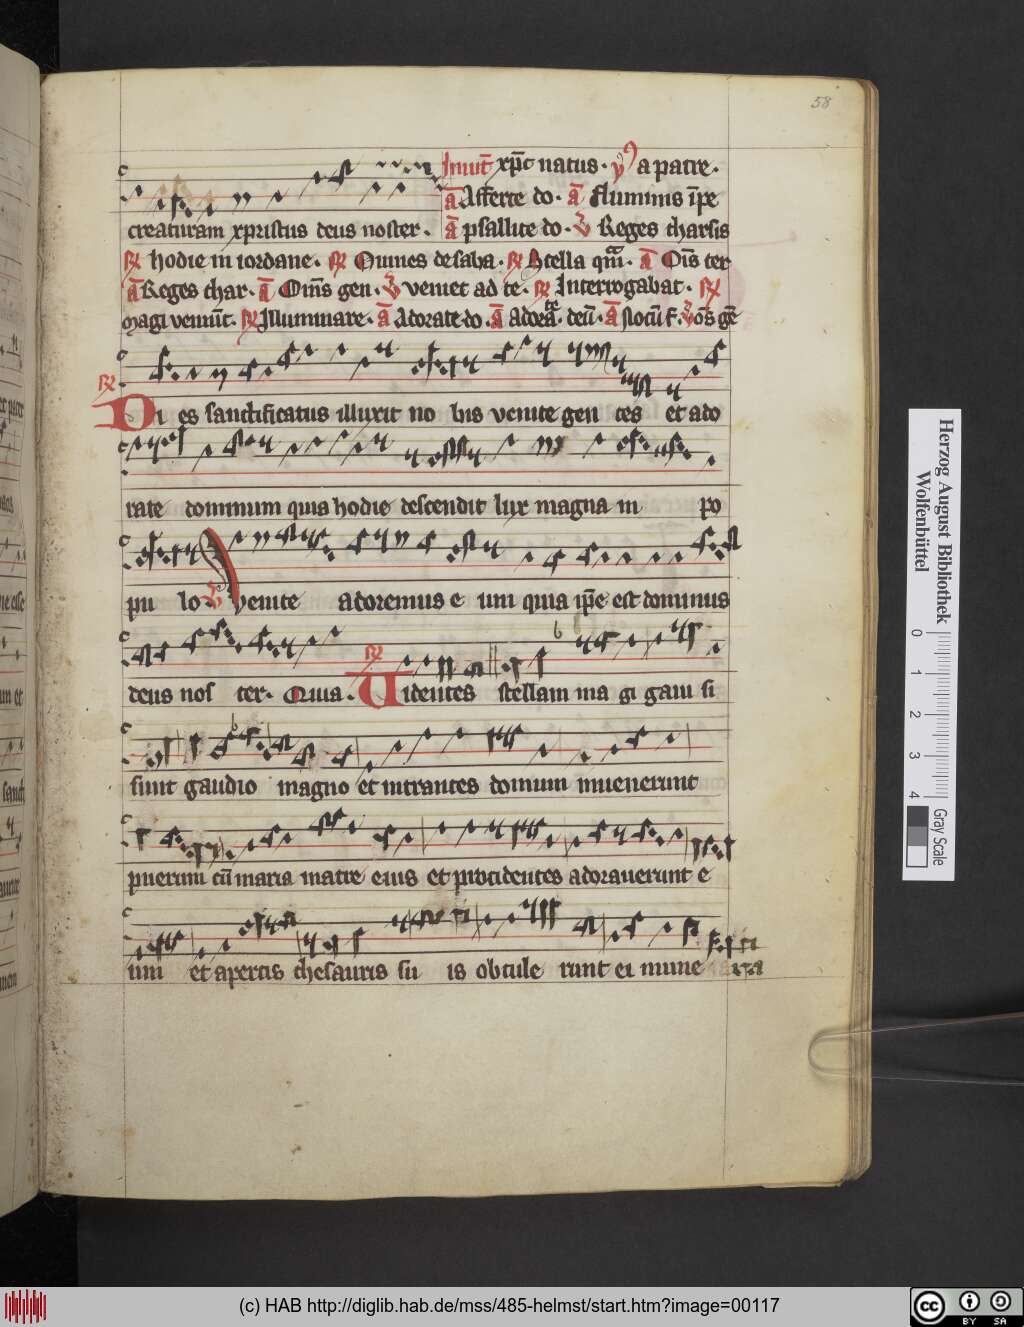 58
Inuit̄ xp̄c natus · ỳ a patre ·
ā Afferte do · ā fluminis īpe
creaturam xpristus deus noster · ā psallite do · v̄ Reges tharsis
℟ hodie in iordane · ℟ Omnes de saba · ℟ Stella qm̄ · ā Om̄s ter
ā Reges thar · ā Om̄s gen · v̄ veniet ad te · ℟ Interrogabat · ℟
magi veniūt · ℟ Illuminare · ā Adorate do · ā Adorate deū · ā
℟
Di es sanctificatus illuxit no bis venite gen tes et ado
rate dominum quia hodie descendit lux magna in po
pu lo · v̄ venite adoremus e um quia ip̄e est dominus
deus nos ter · Quia · ℟ Videntes stellam ma gi gaui si
sunt gaudio magno et intrantes domum inuenerunt
puerum cū maria matre eius et procidentes adorauerunt e
um et apertis thesauris su is obtule runt ei mune ra
Herzog August Bibliothek
Wolfenbüttel
0 1 2 3 4
Gray Scale
(c) HAB http://diglib.hab.de/mss/485-helmst/start.htm?image=00117
cc BY SA